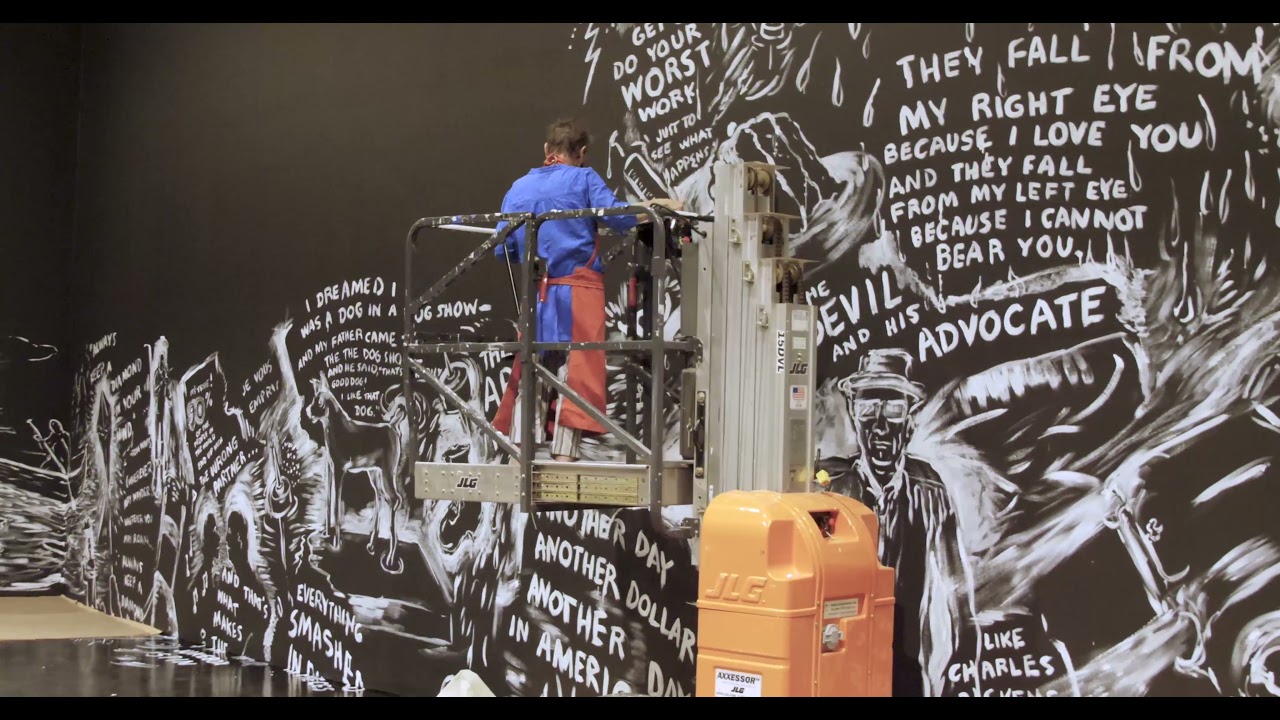 GET
DO YOUR
WORST
WORK
JUST TO
SEE WHAT
HAPPENS
THEY FALL FROM
MY RIGHT EYE
BECAUSE I LOVE YOU
AND THEY FALL
FROM MY LEFT EYE
BECAUSE I CANNOT
BEAR YOU
THE
DEVIL
AND HIS
ADVOCATE
I DREAMED I
WAS A DOG IN A
SHOW-
AND MY FATHER CAME
THE THE DOG SHOW
AND HE SAID, "THAT'S
GOOD DOG!
I LIKE THAT
DOG."
ALWAYS
KEEP A
DIAMOND
IN YOUR
MIND
WHEREVER YOU
MAY ROAM
ALWAYS
KEEP A
JE VOUS
WRONG
PARTNER...
AND THAT'S
WHAT
MAKES
THE
EVERYTHING
SMASHED
IN
ANOTHER DAY
ANOTHER DOLLAR
ANOTHER DAY
IN AMERICA
LIKE
CHARLES
DICKENS
15DVL
JLG
JLG
JLG
AXXESSOR
JLG